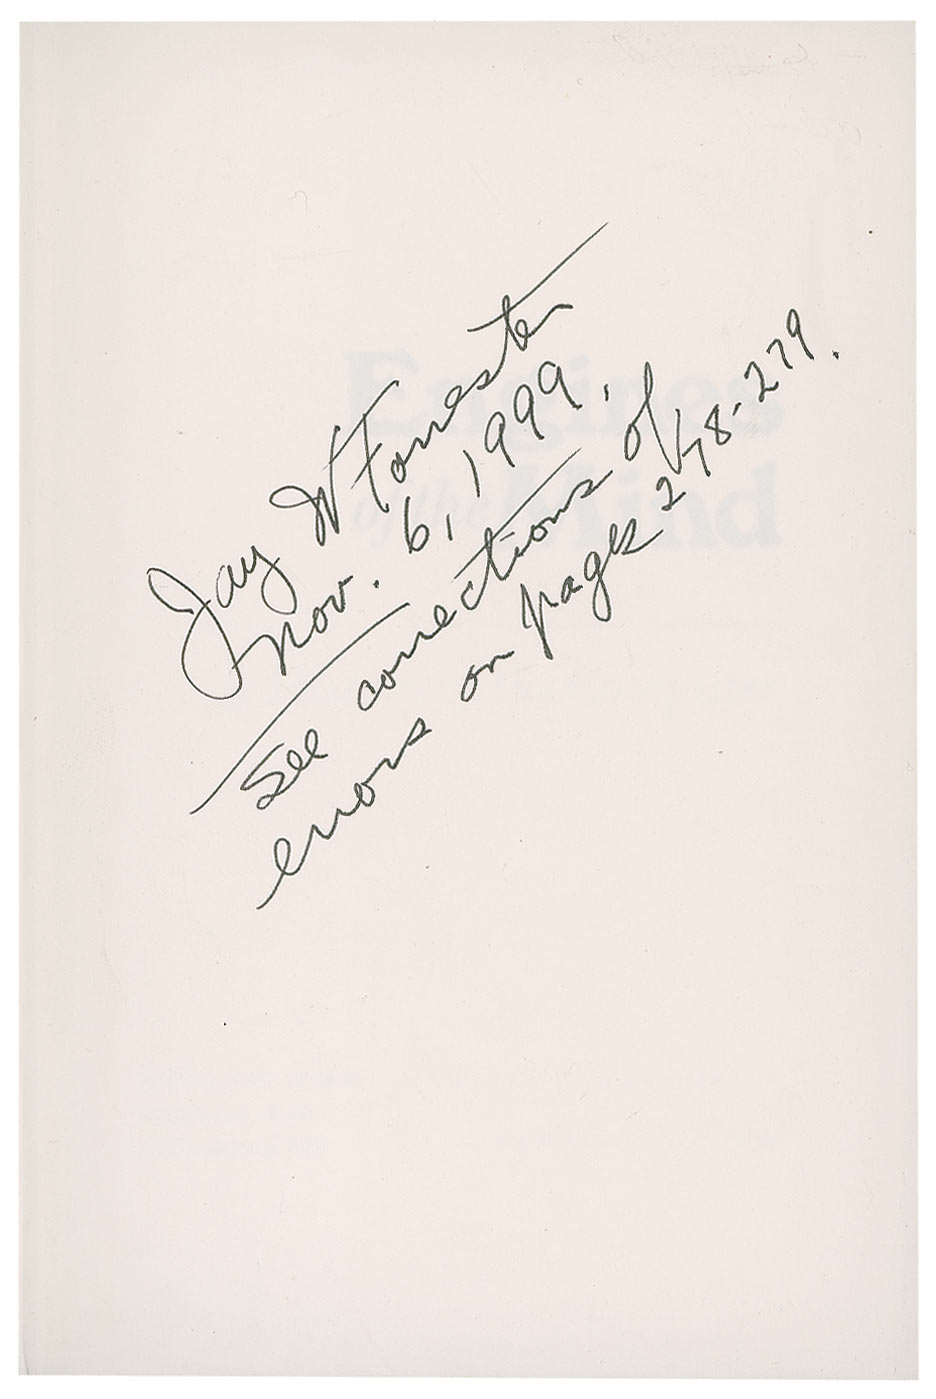 Jay W Forrester
Nov. 6, 1999.
See corrections of
errors on pages 278-279.
Engines
of the Mind